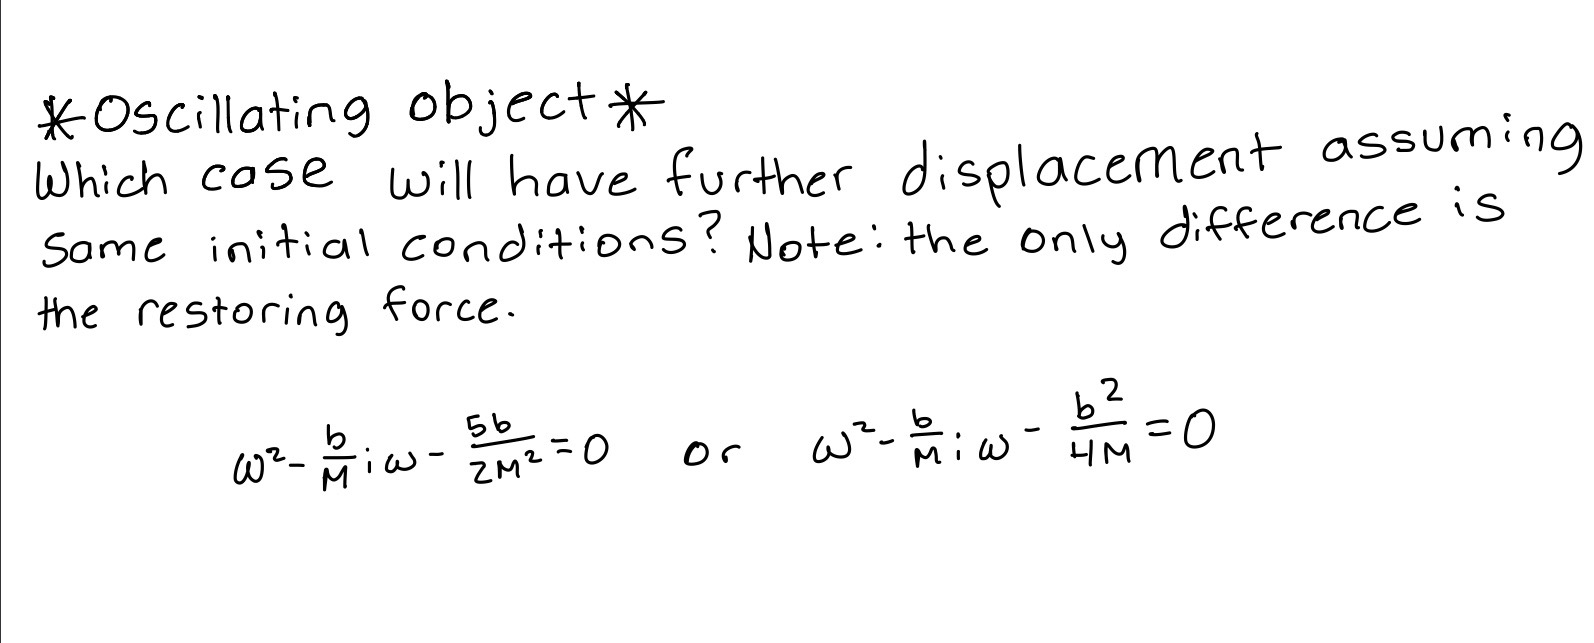 *Oscillating object*
Which case will have further displacement assuming
same initial conditions? Note: the only difference is
the restoring force.
ω² - b/M iω - 5b/2M² = 0 or ω² - b/M iω - b²/4M = 0